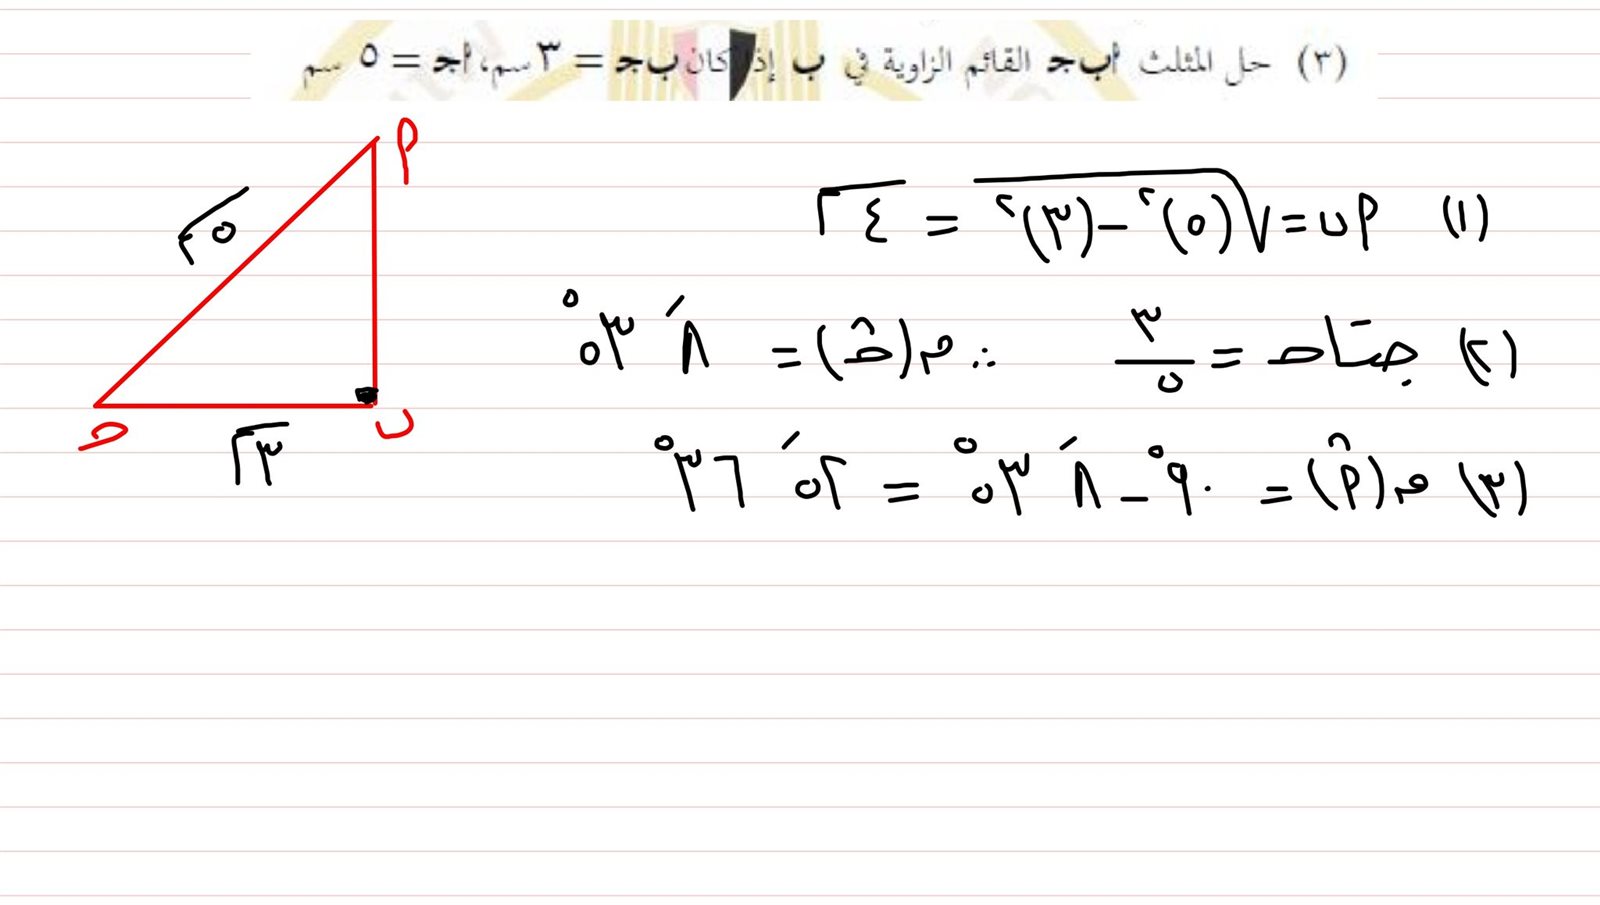 (٣) حل المثلث أ ب جـ القائم الزاوية في ب إذا كان ب جـ = ٣ سم، أ جـ = ٥ سم
(١) أ ب = √(٥)² − (٣)² = ٤ سم
(٢) جتا حـ = ٣/٥ ∴ م(حـ̂) = ٨′ ٥٣°
(٣) م(أ̂) = ٩٠° − ٨′ ٥٣° = ٥٢′ ٣٦°
أ
٥ سم
حـ
ب
٣ سم